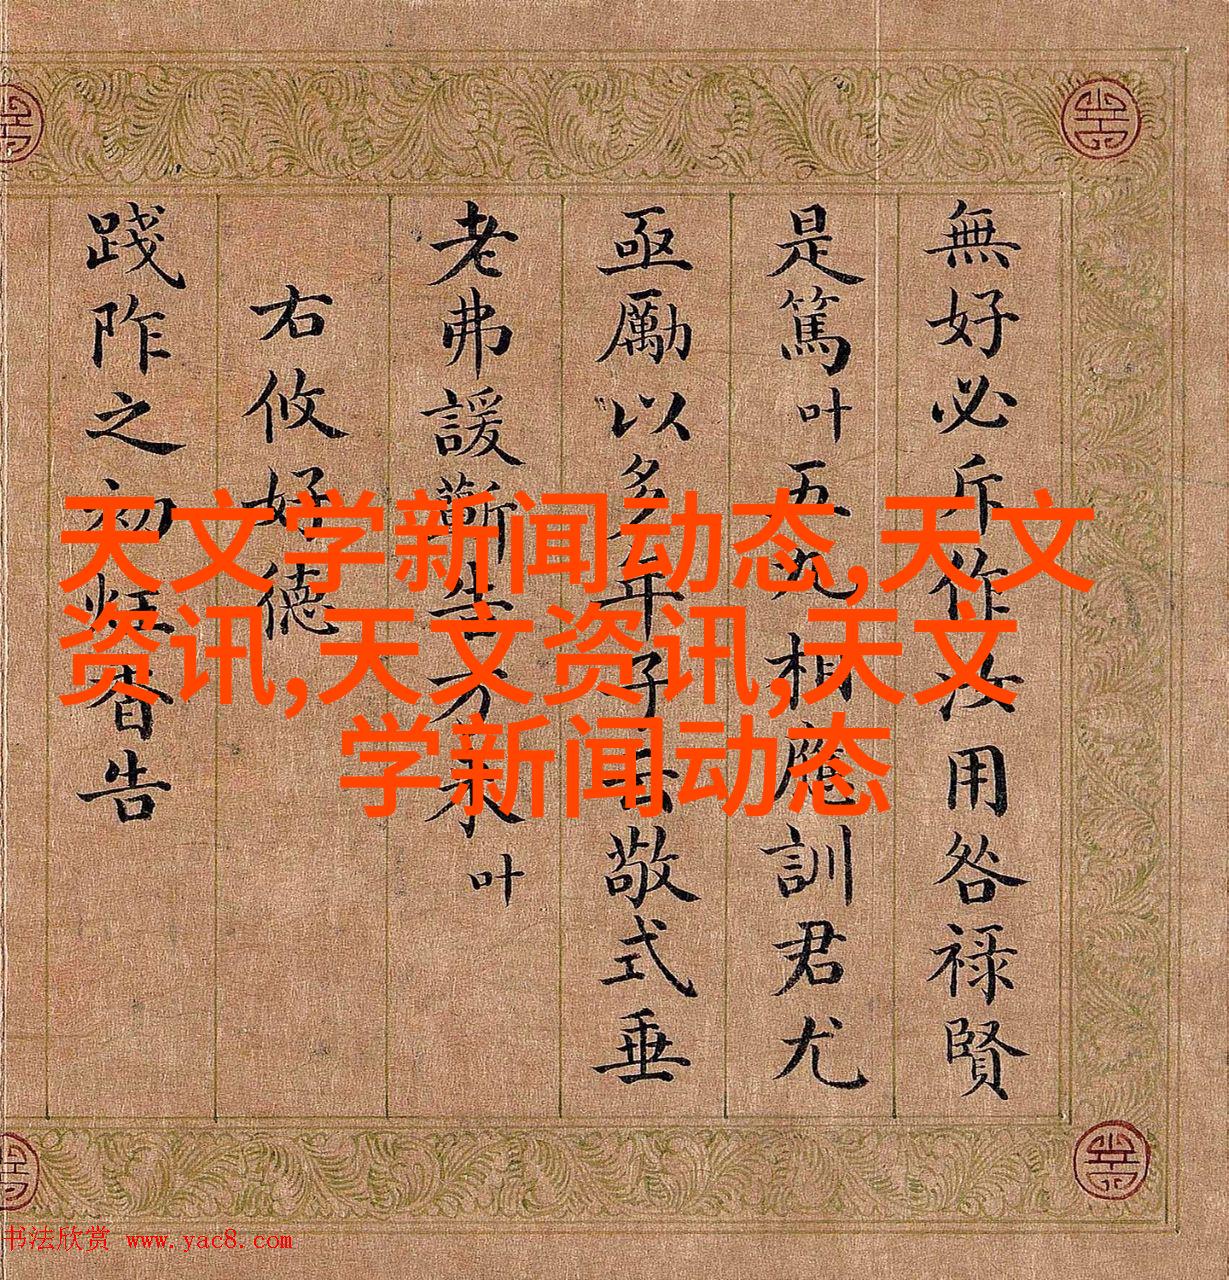 無好必斥作汝用咎祿賢
是篤叶五九相應訓君尤
亟勵以多年敬式垂
老弗諼蘄告方来叶
右攸好德
踐阼之初炷香告
天文学新闻动态,天文
资讯,天文资讯,天文
学新闻动态
书法欣赏 www.yac8.com